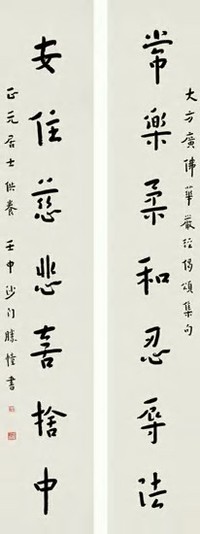 大方廣佛華嚴經偈頌集句
常樂柔和忍辱法
安住慈悲喜捨中
正元居士供養 壬申沙門勝愷書